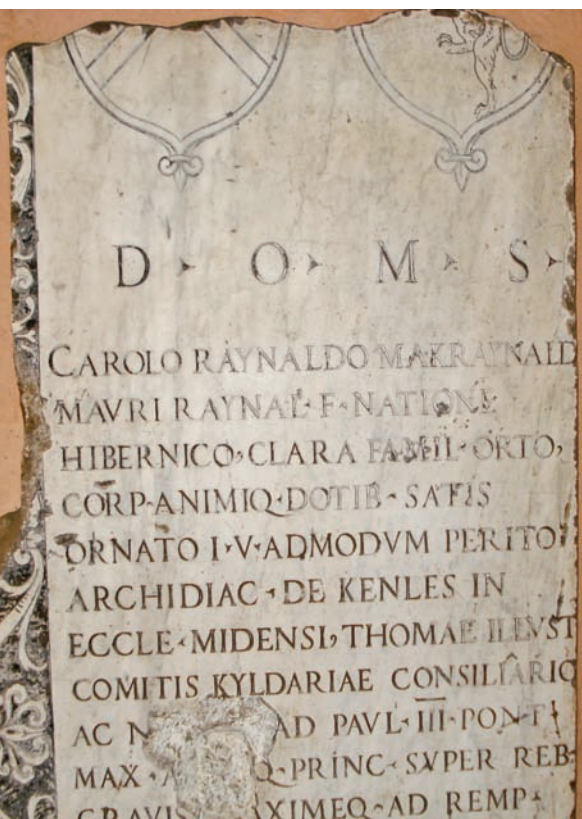 D · O · M · S ·
CAROLO RAYNALDO MAKRAYNALD
MAVRI RAYNAL · F · NATIONE
HIBERNICO, CLARA FAMIL · ORTO,
CORP · ANIMIQ · DOTIB · SATIS
ORNATO I · V · ADMODVM PERITO
ARCHIDIAC · DE KENLES IN
ECCLE · MIDENSI, THOMAE ILLVST
COMITIS KYLDARIAE CONSILIARIO
AC AD PAVL · III · PONT ·
MAX · PRINC · SVPER REB ·
AD REMP ·